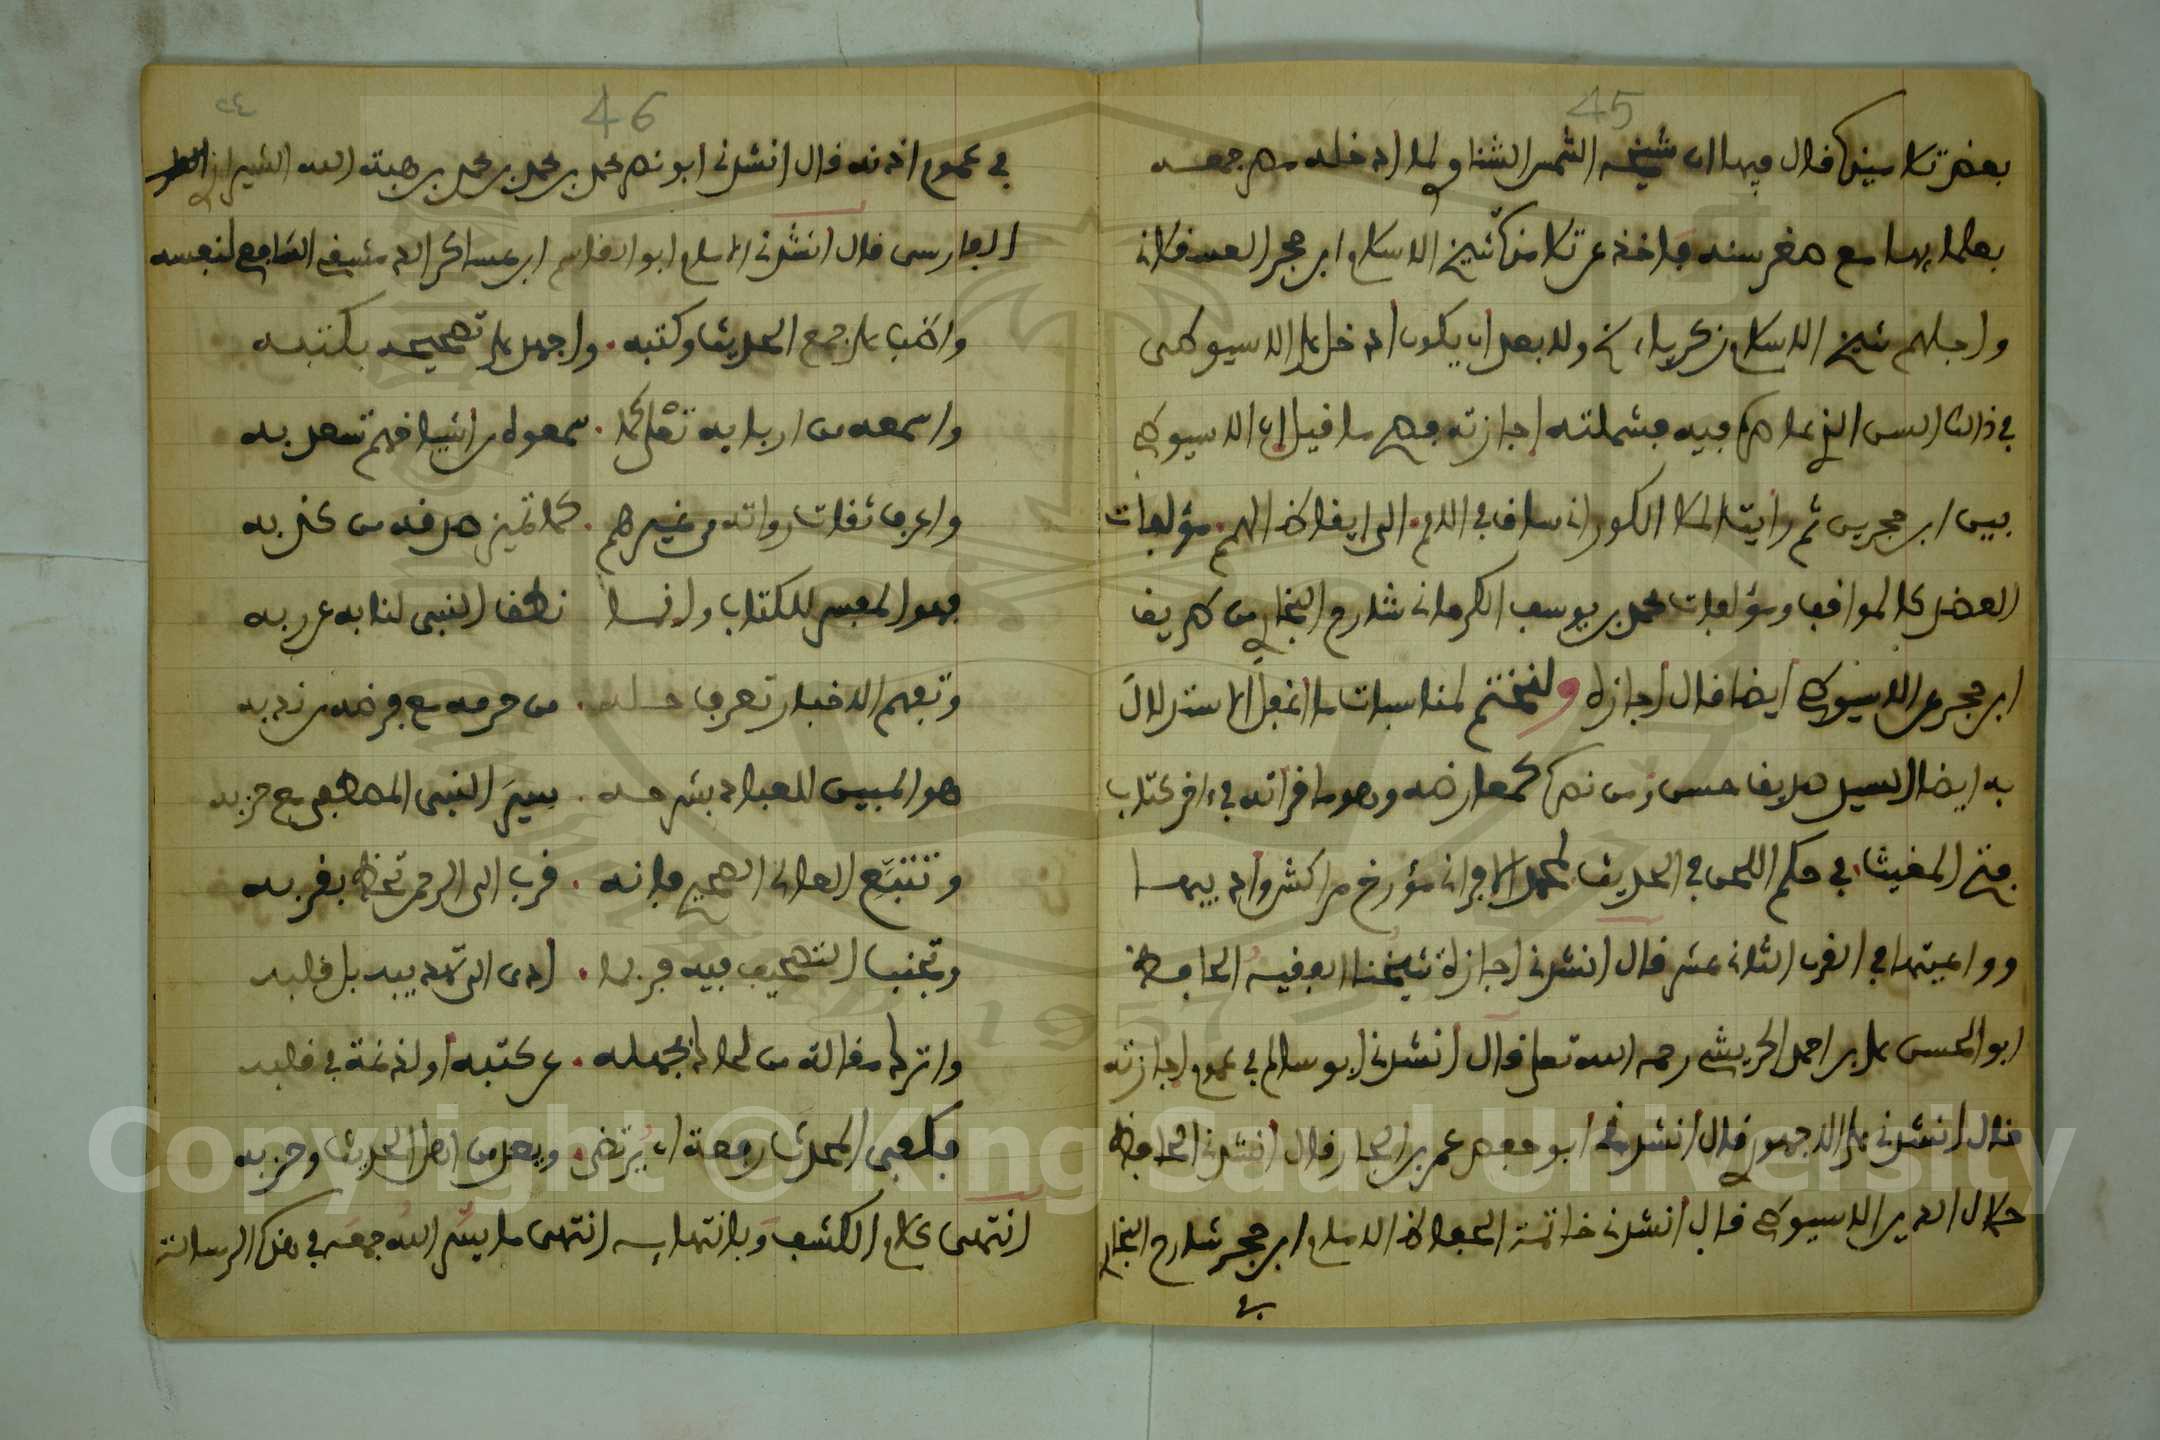 45
بعض تلاميذه قال فيها ان شيخه الشمس الشناوي لما ادخله مصر جمعه
بعلمايها مع صغر سنه فاخذ عن تلامذة شيخ الاسلام ابن حجر العسقلاني
واجلهم شيخ الاسلام زكرياء الخ ولا بعد ان يكون ادخل على الاسيوطي
في ذالك السن الذي مات فيه فشملته اجازته فصح ما قيل ان الاسيوطي
بين ابن حجرين ثم رأيت الملا الكوراني ساق في الامم الى ايقاظ الهمم مؤلفات
العضد كالمواقف ومؤلفات محمد بن يوسف الكرماني شارح البخاري من طريق
ابن حجر عن الاسيوطي ايضا قال اجازة ولنختتم لمناسبات ما انفعل الاستدلال
به ايضا السيد صديق حسن ومن نصر كمعارضه وصوما قراته في ءاخر كتاب
فتح المغيث في حكم اللحن في الحديث لمحمد الافراني مؤرخ مراكش واديبها
وواعيتها في القرن الثاني عشر قال انشدني اجازة شيخنا الفقيه الحافظ
ابو الحسن علي بن احمد الحريشي رحمه الله تعلى قال انشدني ابو سالم في عموم اجازته
قال انشدني علي الاجهوري قال انشدني ابو حفص عمر بن الجاي قال انشدني الحافظ
جلال الدين الاسيوطي قال انشدني خاتمة الحفاظ الامام ابن حجر شارح البخاري
في
46
٢٤
في عموم اذنه قال انشدني ابو نصر محمد بن محمد بن محمد بن هبة الله الشيرازي
الفارسي قال انشدني الامام ابو القاسم ابن عساكر الدمشقي الشافعي لنفسه
واظب على جمع الحديث وكتبه . واجهد على تصحيحه بكتبه
واسمعه من اربابه نقلا كما . سمعوه من اشياخهم تسعد به
واعرف ثقات رواته من غيرهم . كيما تميز صدقه من كذبه
فهو المفسر للكتاب وانما نطق النبي لنا به عن ربه
وتفهم الاخبار تعرف حله . من حرمه مع فرضه من ندبه
هو المبين للعباد بشرحه . سير النبي المصطفى مع حزبه
وتتبع العالي الصحيح فانه . قرب الى الرحمن تحظ بقربه
وتجنب التصحيف فيه فربما . ادى الى تحريفه بل قلبه
واترك مقالة من لحاك بجهله . عن كتبه او بدعة في قلبه
فكفى المحدث رفعة ان يرتضى . ويعد من اهل الحديث وحزبه
انتهى كلام الكشف وبانتهايه انتهى ما يسر الله جمعه في هذه الرسالة
Copyright © King Saud University
1957